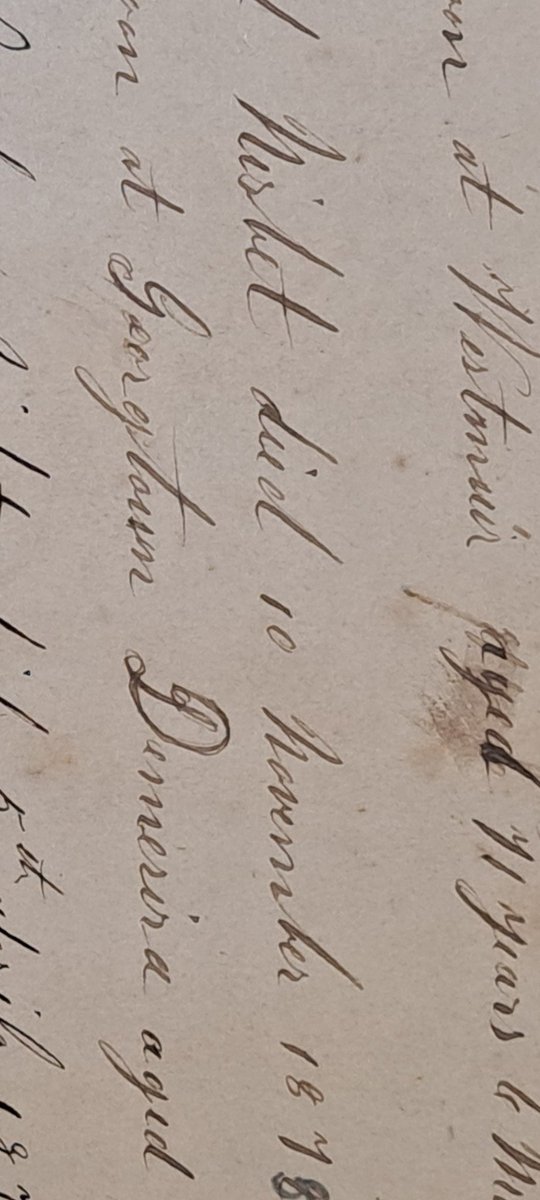 at Westmuir aged 71 years 6
Nisbet died 10 November 1878
at Georgtown Demerira aged
5th